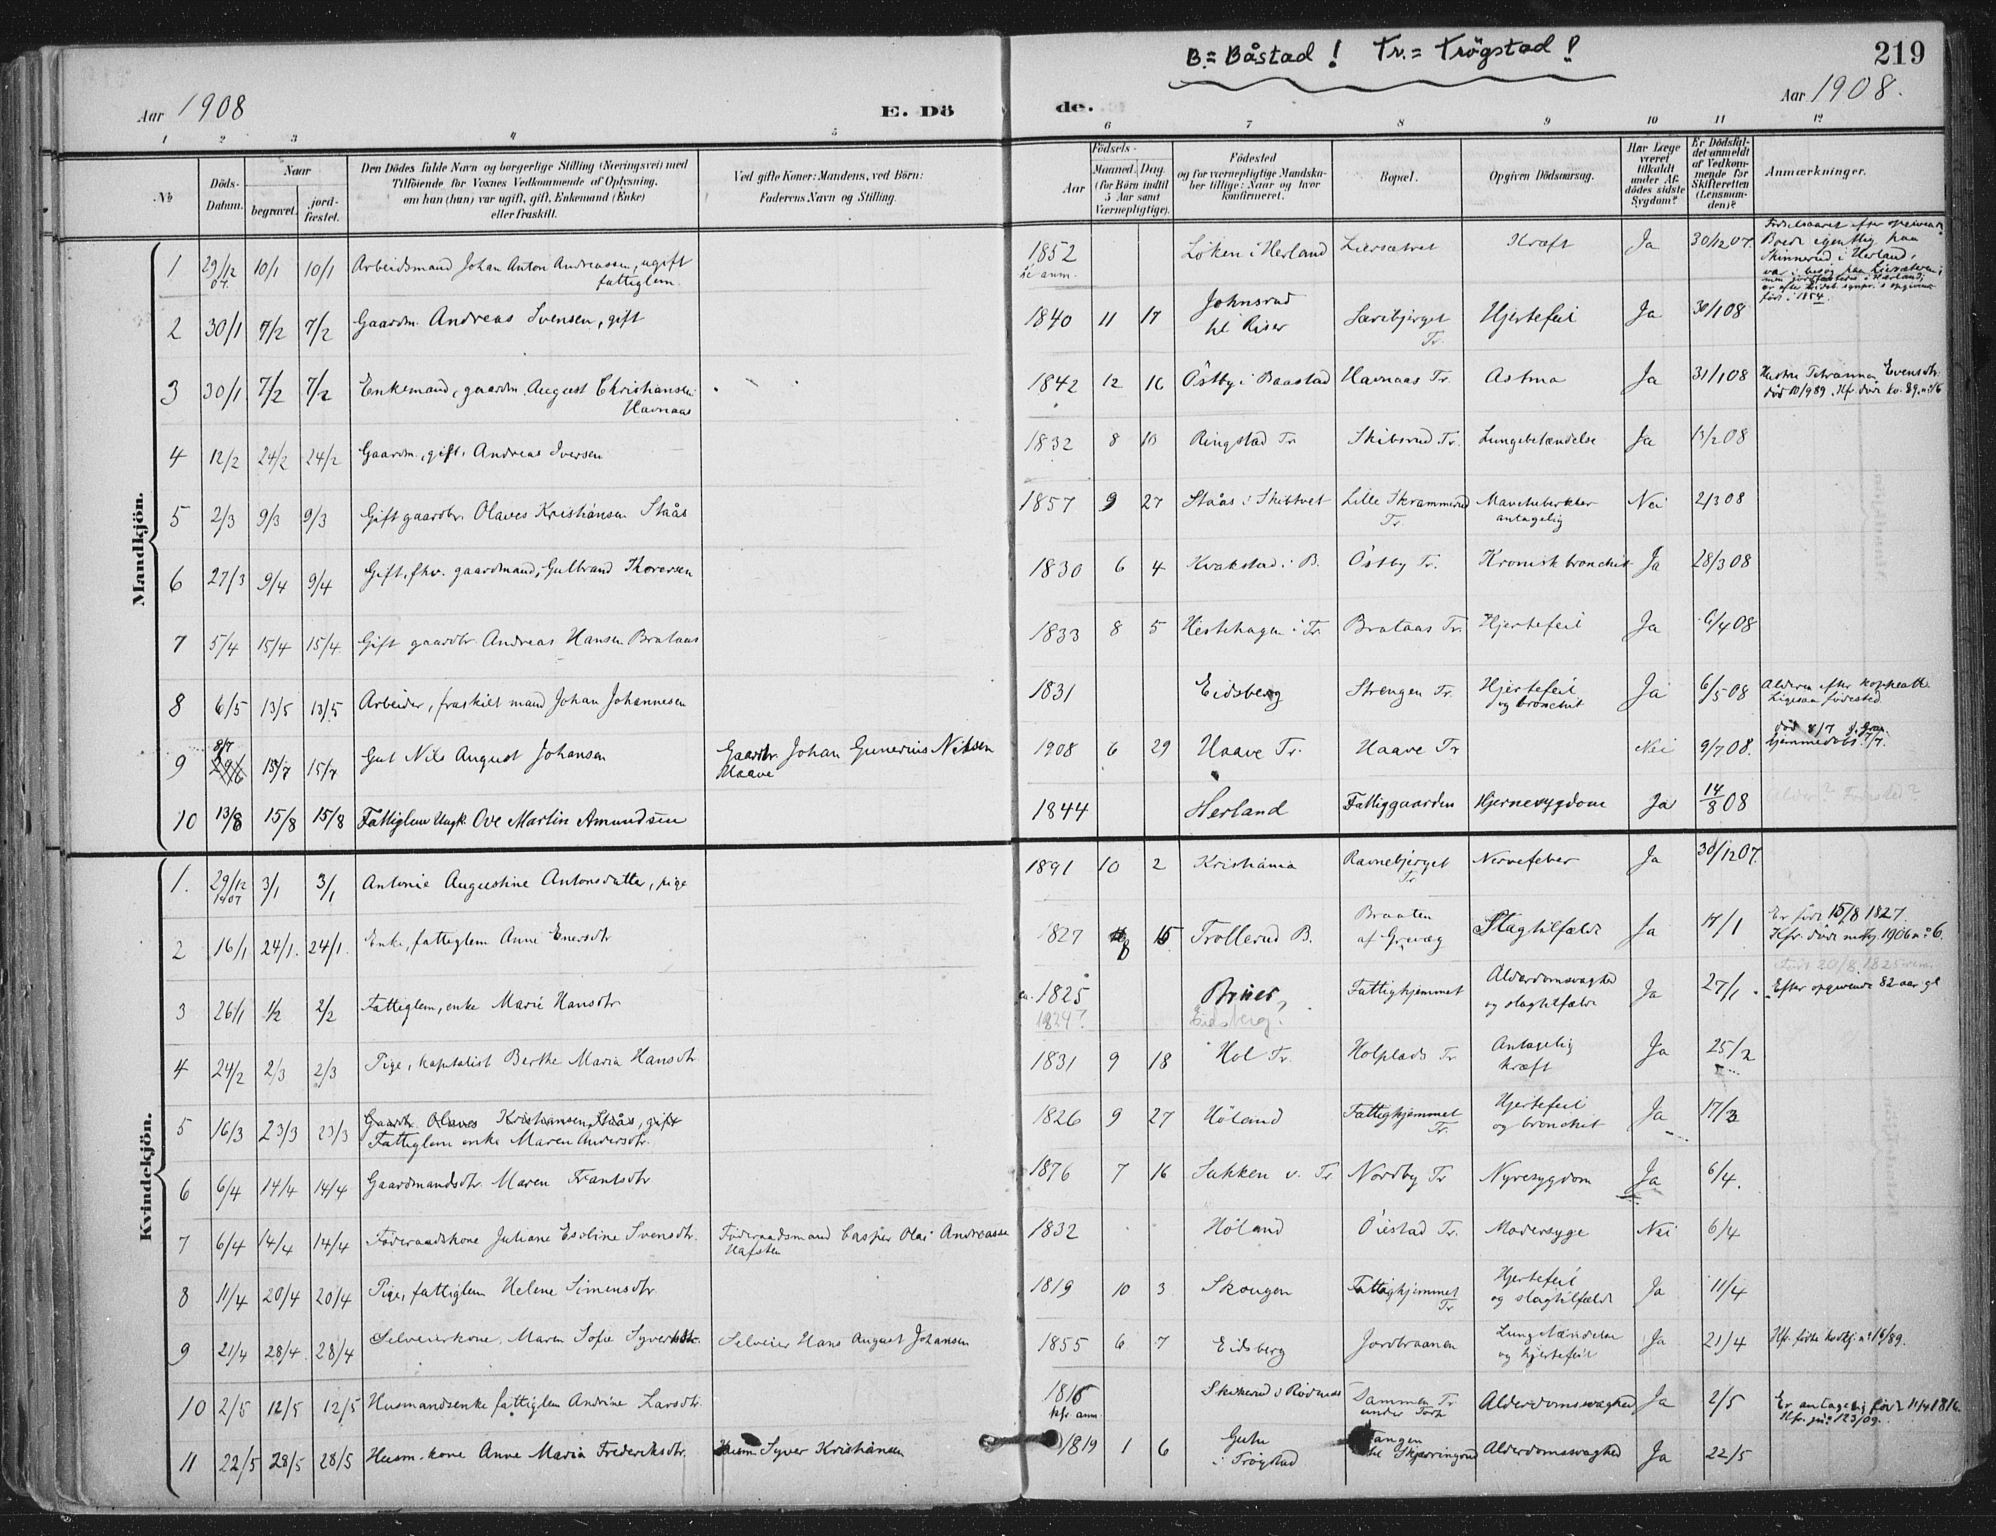 B = Båstad! Tr. = Trögstad!
219
Aar 1908
E. Dö
de.
Aar 1908.
1 2 3 4 5 6 7 8 9 10 11 12
No
Döds-Datum.
Naar
begravet.
jord-fæstet.
Den Dödes fulde Navn og borgerlige Stilling (Næringsvei) med
Tilföiende for Voxnes Vedkommende af Oplysning,
om han (hun) var ugift, gift, Enkemand (Enke)
eller fraskilt.
Ved gifte Koner: Mandens, ved Börn:
Faderens Navn og Stilling.
Födsels-
Aar
Maaned. Dag.
(for Börn indtil
5 Aar samt
Værnepligtige).
Födested
og for værnepligtige Mandska-
ber tillige: Naar og hvor
konfirmeret.
Bopæl.
Opgiven Dödsaarsag.
Har Læge
været
tilkaldt
under Af-
dödes sidste
Sygdom?
Er Dödsfal-
det anmeldt
af Vedkom-
mende for
Skifteretten
(Lensman-
den)?
Anmærkninger.
Mandkjön.
1 29/12 07. 10/1 10/1 Arbeidsmand Johan Anton Andreassen, ugift fattiglem 1852 Løken i Herland Kræft Ja 30/12 07.
2 30/1 7/2 7/2 Gaardm. Andreas Svensen, gift 1840 11 17 Johnsrud til Riser Tr. Hjertefeil Ja 30/1 08
3 30/1 7/2 7/2 Enkemand, gaardm. August Christiansen Havnaas 1842 12 16 Östby i Baastad Havnaas Tr. Astma Ja 31/1 08
4 12/2 24/2 24/2 Gaardm., gift, Andreas Iversen 1832 8 Ringstad Tr Skibsrud Tr. Lungebetændelse Ja 13/2 08
5 2/3 9/3 9/3 Gift gaardbr. Olaves Kristiansen Staås 1857 9 27 Staås i Skibtvet Lille Skrammerud Tr. antagelig Nei 2/3 08
6 27/3 9/4 9/4 Gift, fhv. gaardmand, Gulbrand Thoresen 1830 6 4 Kvakstad i B. Östby Tr. Kronisk bronchit Ja 28/3 08
7 5/4 15/4 15/4 Gift gaardbr. Andreas Hansen Brataas 1833 8 5 Hestehagen i Tr. Brataas Tr. Hjertefeil Ja 6/4 08
8 6/5 13/5 13/5 Arbeider, fraskilt mand Johan Johannesen 1831 Eidsberg Strengen Tr. Hjertefeil og bronchit Ja 6/5 08
9 8/7 15/7 15/7 Gut Nils August Johansen Gaardbr. Johan Gunerius Nilsen Haave 1908 6 29 Haave Tr. Haave Tr Nei 9/7 08. død 8/7
10 13/8 15/8 15/8 Fattiglem Ungk. Ove Martin Amundsen 1844 Herland Fattiggaarden Hjernesygdom Ja 14/8 08
Kvindekjön.
1. 29/12 1907 3/1 3/1 Antonie Augustine Antonsdatter, pige 1891 10 2 Kristiania Ravnebjerget Tr Nervefeber Ja 30/12 07.
2 16/1 24/1. 24/1. Enke, fattiglem Anne Enersdtr 1827 8 15 Trollerud B. Braaten Slagtilfælde Ja 17/1 Er født 15/8 1827.
3 26/1 1/2 2/2 Fattiglem, enke Marie Hansdtr. ca. 1825 1824? Eidsberg? Fattighjemmet Alderdomsvaghed og slagtilfælde Ja 27/1. Efter opgivende 82 aar gl
4 24/2 2/3 2/3 Pige, kapitalist Berthe Maria Hansdtr. 1831 9 18 Hol Tr. Holplads Tr Antagelig kræft Ja 25/2
5 16/3 23/3 23/3 Gaardbr. Olaves Kristiansen Staås, gift
Fattiglem enke Maren Andersdtr. 1826 9 27 Høland Fattighjemmet Tr. Hjertefeil og bronchit Ja 17/3
6 6/4 14/4 14/4 Gaardmandsdtr. Maren Frantsdtr 1876 7 16 Sakken v. Tr. Nordby Tr Nyresygdom Ja 6/4.
7 6/4 14/4 14/4 Føderaadskone Juliane Eseline Svensdtr. Føderaadsmand Casper Olai Andreasen Hafsten 1832 Høland Öiestad Tr. Modersyge Nei 6/4
8 11/4 20/4 20/4 Pige, fattiglem Helene Simensdtr. 1819 10 3 Skougen Fattighjemmet Tr Hjertefeil og slagtilfælde Ja 11/4
9 21/4 28/4. 28/4 Selveierkone. Maren Sofie Syversdtr. Selveier Hans August Johansen 1855 6 7 Eidsberg Jordbraanen og hjertefeil Ja 21/4
10 2/5 12/5 12/5 Husmandsenke fattiglem Andrine Larsdtr. 1816 Dammen Tr Alderdomsvaghed Ja 2/5 Er antagelig født 11/4 1816.
11 22/5 28/5 28/5 Husm.-kone Anne Maria Frederiksdtr. Husm. Syver Kristiansen 1819 1 6 i Trøgstad Alderdomsvaghed Ja 22/5